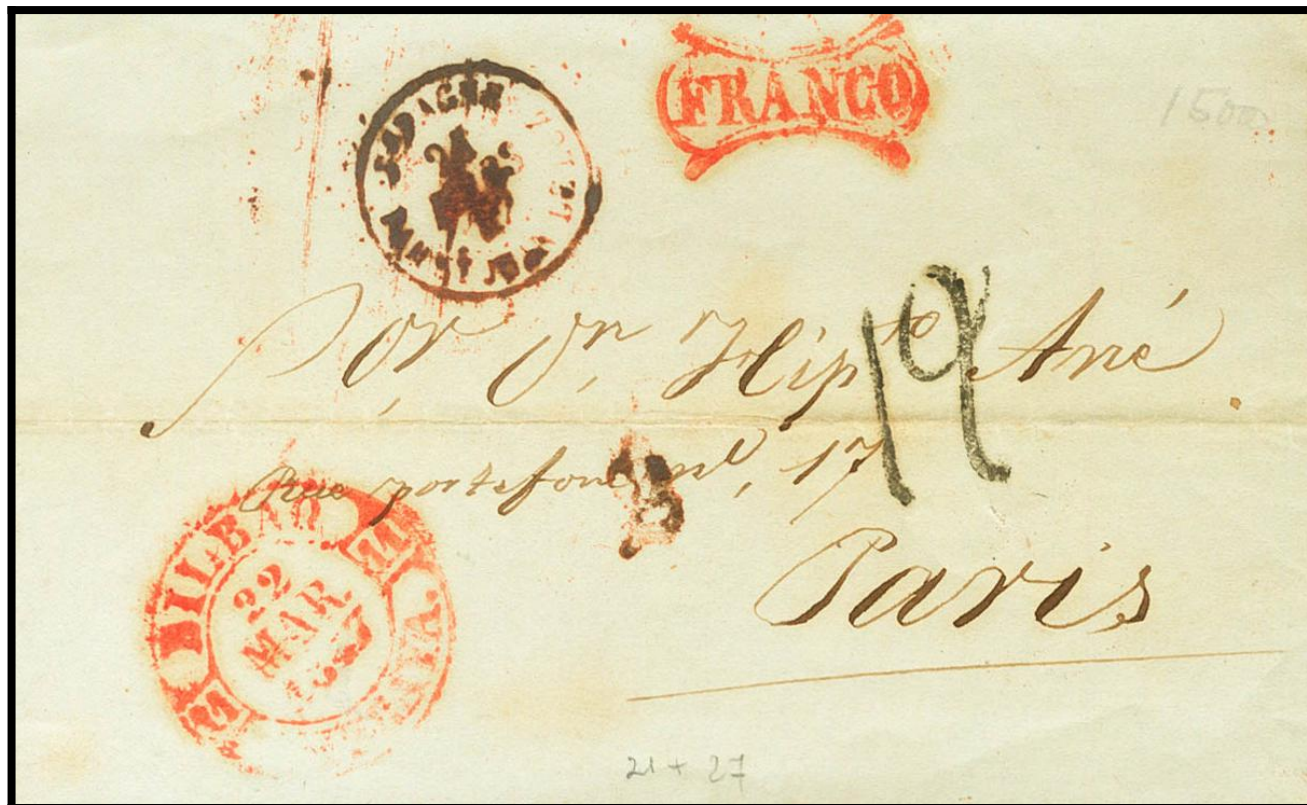 FRANCO
ESPAGNE
1500
Por, Dn Hipto Ané
19
Rue portefoin nl, 17
Paris
BILBAO
22
MAR.
21 + 27